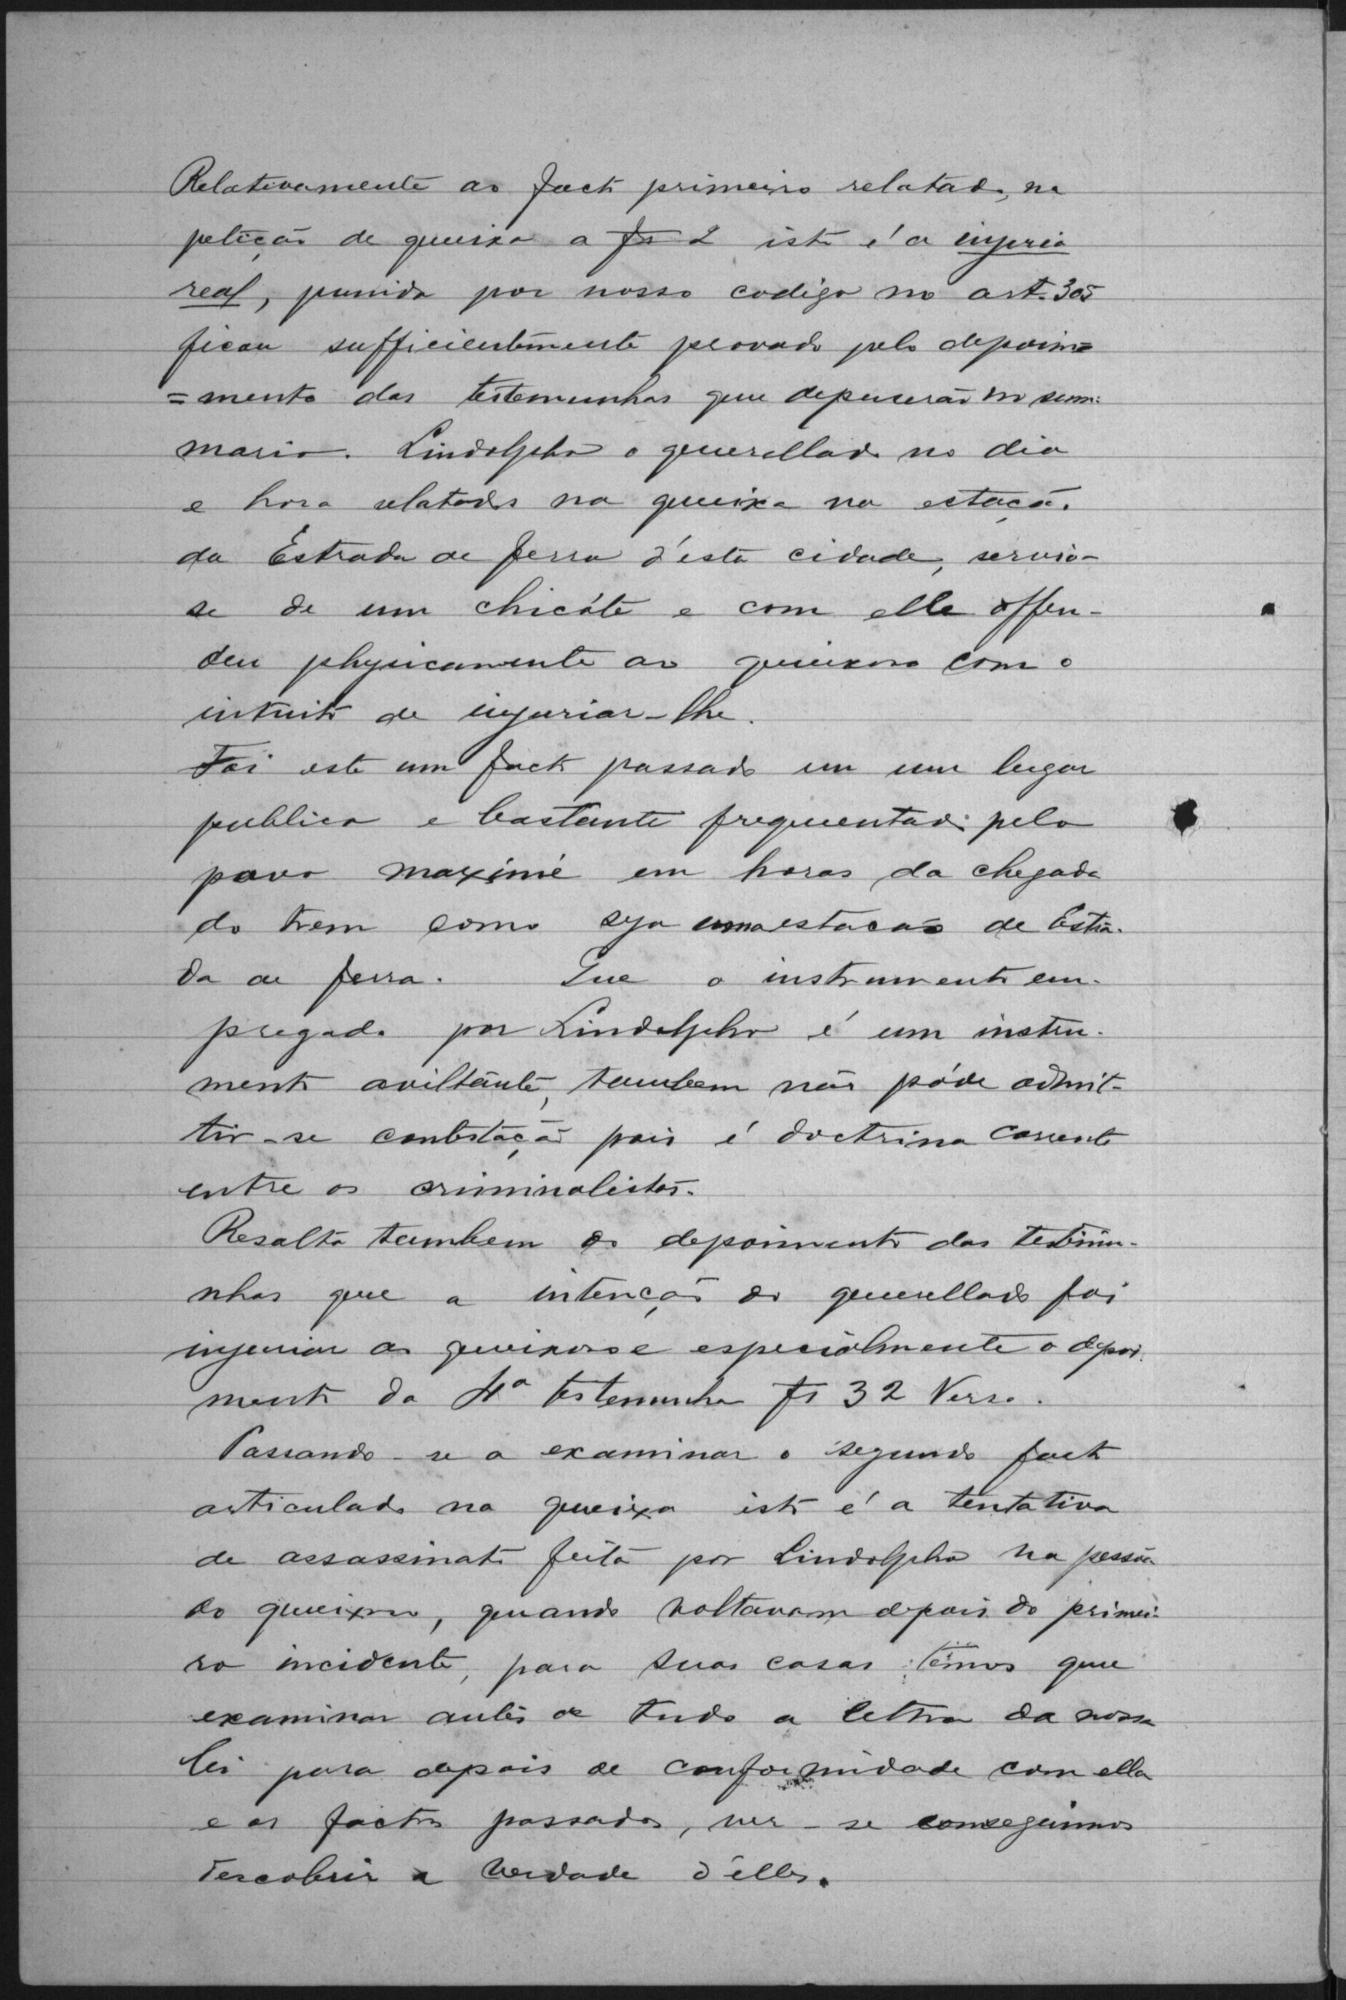 Relativamente ao facto primeiro relatado, na
petição de queixa a fs 2 isto é a injuria
real, punida por nosso codigo no art. 305
ficou sufficientemente provado pelo depoim=
=mento das testemunhas que depuserão no sum:
mario. Lindolpho o querellado no dia
e hora relatados na queixa na estação
da Estrada de ferro d'esta cidade, servio-
se de um chicóte e com elle offen-
deu physicamente ao queixoso com o
intuito de injuriar-lhe.
Foi este um facto passado em um lugar
publico e bastante frequentado pelo
povo maximé em horas da chegada
do trem como seja uma estacão de Estra-
da de ferro. Que o instrumento em-
pregado por Lindolpho é um instru-
mento aviltante, tambem não póde admit-
tir-se contestação pois é doctrina corrente
entre os criminalistas.
Resalta tambem do depoimento das testemu-
nhas que a intenção do querellado foi
injuriar ao queixoso e especialmente o depoi-
mento da 4ª testemunha fs 32 Verso.
Passando-se a examinar o segundo facto
articulado na queixa isto é a tentativa
de assassinato feita por Lindolpho na pessôa
do queixoso, quando voltavam depois do primei-
ro incidente, para suas casas temos que
examinar antes de tudo a letra da nossa
lei para depois de conformidade com ella
e os factos passados, ver-se conseguimos
descobrir a verdade d'elles.